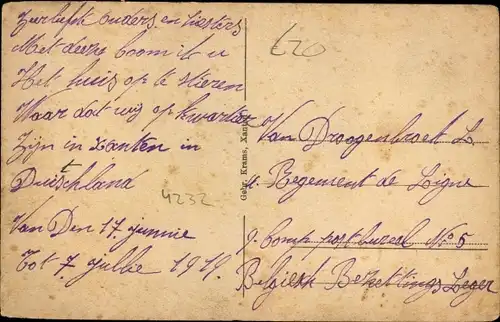 Zeer liefste ouders en Susters
Met deze koom ik u
Het huis op te stieren
Waar dat wij op kwartier
Zijn in Xanten in
Duitschland
4232
Van Den 17 junnie
Tot 7 jullie 1919.
Gebr. Krams, Xanten
£20
Van Droogenbroet L
11. Regement de Ligne
9. Comp post buzeel No 5
Belgiesh Bezettings Leger